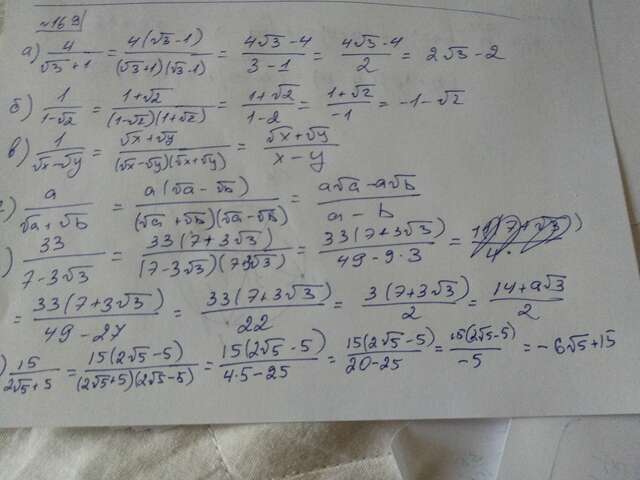 №169
а) 4/(√3+1) = 4(√3-1)/((√3+1)(√3-1)) = (4√3-4)/(3-1) = (4√3-4)/2 = 2√3-2
б) 1/(1-√2) = (1+√2)/((1-√2)(1+√2)) = (1+√2)/(1-2) = (1+√2)/(-1) = -1-√2
в) 1/(√x-√y) = (√x+√y)/((√x-√y)(√x+√y)) = (√x+√y)/(x-y)
г) a/(√a+√b) = a(√a-√b)/((√a+√b)(√a-√b)) = (a√a-a√b)/(a-b)
) 33/(7-3√3) = 33(7+3√3)/((7-3√3)(7+3√3)) = 33(7+3√3)/(49-9·3) =
= 33(7+3√3)/(49-27) = 33(7+3√3)/22 = 3(7+3√3)/2 = (14+9√3)/2
) 15/(2√5+5) = 15(2√5-5)/((2√5+5)(2√5-5)) = 15(2√5-5)/(4·5-25) = 15(2√5-5)/(20-25) = 15(2√5-5)/(-5) = -6√5+15